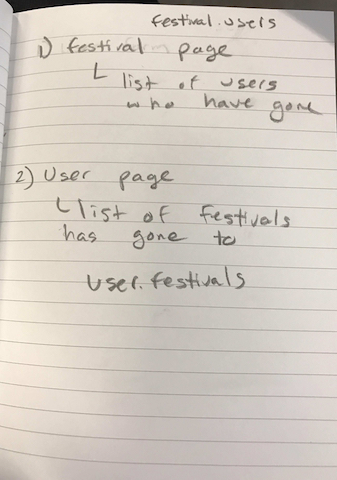 festival.users
1) festival page
L list of users
who have gone
2) User page
L list of festivals
has gone to
user.festivals